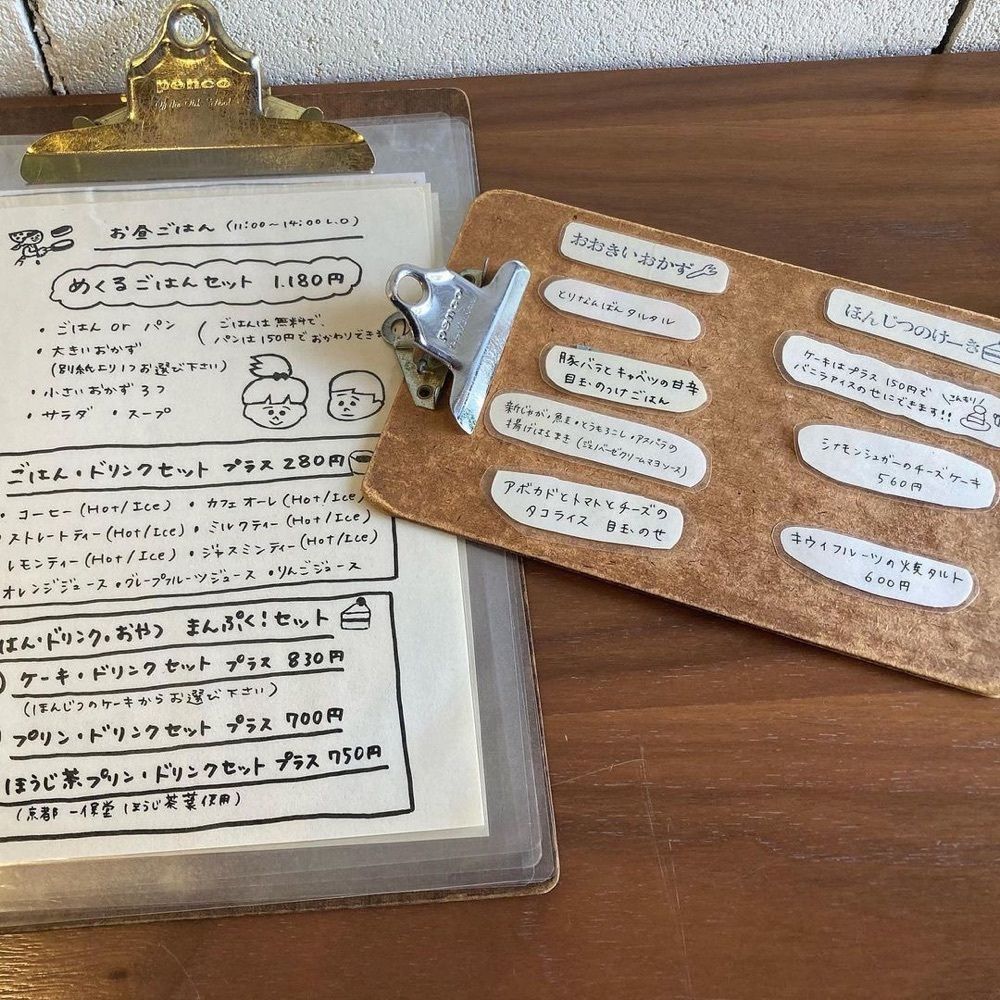 penco
お昼ごはん (11:00〜14:00 L.O)
めくるごはんセット 1.180円
・ごはん or パン (ごはんは無料で、
パンは150円でおかわりでき
・大きいおかず
(別紙より1つお選び下さい)
・小さいおかず3つ
・サラダ ・スープ
ごはん・ドリンクセット プラス280円
・コーヒー(Hot/Ice) ・カフェオーレ(Hot/Ice)
ストレートティー(Hot/Ice) ・ミルクティー(Hot/Ice)
レモンティー(Hot/Ice) ・ジャスミンティー(Hot/Ice)
オレンジジュース ・グレープフルーツジュース ・りんごジュース
はん・ドリンク・おやつ まんぷく!セット
ケーキ・ドリンクセット プラス 830円
(ほんじつのケーキからお選び下さい)
プリン・ドリンクセット プラス 700円
ほうじ茶プリン・ドリンクセット プラス750円
(京都 一保堂 ほうじ茶葉使用)
penco
おおきいおかず
とりなんばんタルタル
豚バラとキャベツの甘辛
目玉のっけごはん
新じゃが・魚玉・とうもろこし・アスパラの
揚げはるまき(ジェノベーゼクリームマヨソース)
アボカドとトマトとチーズの
タコライス 目玉のせ
ほんじつのけーき
ケーキはプラス150円で
バニラアイスのせにできます!!
こんもり!
シナモンシュガーのチーズケーキ
560円
キウイフルーツの焼タルト
600円